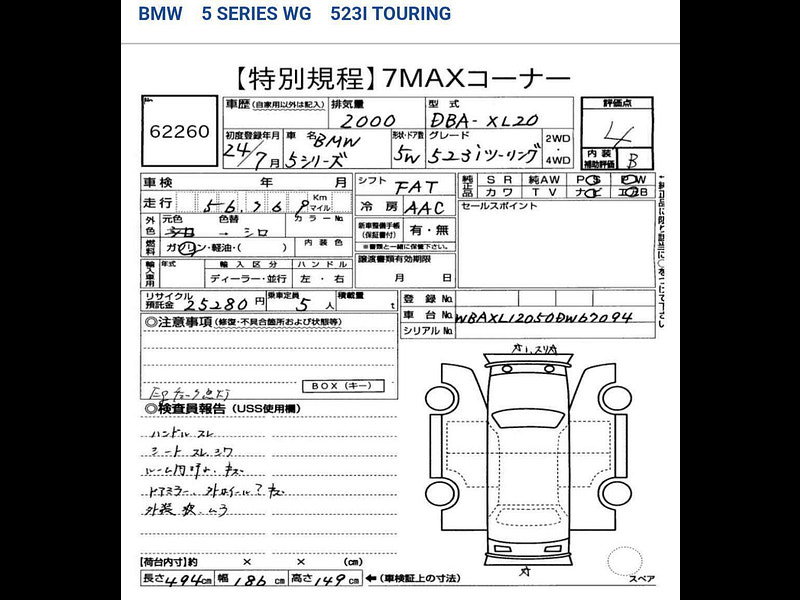 BMW 5 SERIES WG 523I TOURING
【特別規程】7MAXコーナー
62260
車歴(自家用以外は記入)
排気量
2000
型式
DBA-XL20
評価点
4
内装
補助評価
B
初度登録年月
24/7月
車名
BMW
5シリーズ
形状・ドア数
5W
グレード
523iツーリング
2WD
・
4WD
車検 年 月
シフト
FAT
純正品
SR 純AW PS PW
カワ TV ナビ エアB
走行
56,969
Km
マイル
冷房
AAC
セールスポイント
外色
元色 色替 カラーNo.
→ シロ
新車整備手帳
(保証書付)
有・無
※書類と一緒に保管下さい。
燃料
ガソリン・軽油・( )
内装色
輸入車用
年式
輸入区分
ディーラー・並行
ハンドル
左・右
譲渡書類有効期限
月 日
リサイクル
預託金
25280円
乗車定員
5人
積載量
kg
登録No.
車台No.
WBAXL12050DW67094
シリアルNo.
◎注意事項(修復・不具合箇所および状態等)
BOX(キー)
◎検査員報告(USS使用欄)
ハンドル スレ
シート スレ シワ
ドアミラー、外ホイール
[荷台内寸]約 × × (cm)
長さ494cm 幅186cm 高さ149cm ←(車検証上の寸法)
スペア